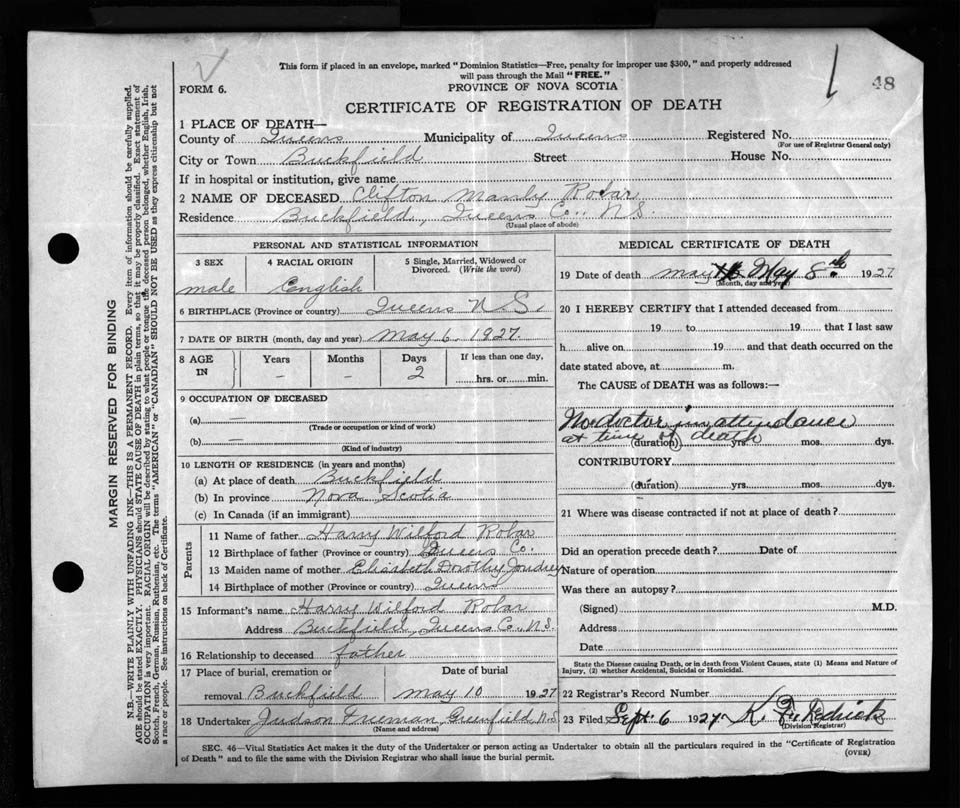 This form if placed in an envelope, marked "Dominion Statistics—Free, penalty for improper use $300," and properly addressed
will pass through the Mail "FREE."
48
FORM 6.
PROVINCE OF NOVA SCOTIA
CERTIFICATE OF REGISTRATION OF DEATH
1 PLACE OF DEATH—
County of Queens Municipality of Queens Registered No.
(For use of Registrar General only)
City or Town Buckfield Street House No.
If in hospital or institution, give name
2 NAME OF DECEASED Clifton Manly Robar
Residence Buckfield, Queens Co., N.S.
(Usual place of abode)
PERSONAL AND STATISTICAL INFORMATION
3 SEX 4 RACIAL ORIGIN 5 Single, Married, Widowed or Divorced. (Write the word)
male English
6 BIRTHPLACE (Province or country) Queens N.S.
7 DATE OF BIRTH (month, day and year) May 6. 1927.
8 AGE IN Years Months Days If less than one day,
– – 2 hrs. or min.
9 OCCUPATION OF DECEASED
(a) —
(Trade or occupation or kind of work)
(b) —
(Kind of industry)
10 LENGTH OF RESIDENCE (in years and months)
(a) At place of death Buckfield
(b) In province Nova Scotia
(c) In Canada (if an immigrant)
Parents
11 Name of father Harry Wilford Robar
12 Birthplace of father (Province or country) Queens Co.
13 Maiden name of mother Elisabeth Dorothy Joudrey
14 Birthplace of mother (Province or country) Queens
15 Informant's name Harry Wilford Robar
Address Buckfield, Queens Co., N.S.
16 Relationship to deceased father
17 Place of burial, cremation or Date of burial
removal Buckfield May 10 1927
18 Undertaker Judson Freeman, Greenfield, N.S.
(Name and address)
MEDICAL CERTIFICATE OF DEATH
19 Date of death May May 8th 1927
(Month, day and year)
20 I HEREBY CERTIFY that I attended deceased from
19 to 19 that I last saw
h alive on 19 and that death occurred on the
date stated above, at m.
The CAUSE of DEATH was as follows:—
No doctor in attendance
at time of death
(duration) yrs. mos. dys.
CONTRIBUTORY
(duration) yrs. mos. dys.
21 Where was disease contracted if not at place of death?
Did an operation precede death? Date of
Nature of operation
Was there an autopsy?
(Signed) M.D.
Address
Date
State the Disease causing Death, or in death from Violent Causes, state (1) Means and Nature of
Injury, (2) whether Accidental, Suicidal or Homicidal.
22 Registrar's Record Number
23 Filed Sept. 6 1927 K.
(Division Registrar)
SEC. 46—Vital Statistics Act makes it the duty of the Undertaker or person acting as Undertaker to obtain all the particulars required in the "Certificate of Registration
of Death" and to file the same with the Division Registrar who shall issue the burial permit.
(OVER)
MARGIN RESERVED FOR BINDING
N.B.—WRITE PLAINLY WITH UNFADING INK—THIS IS A PERMANENT RECORD. Every item of information should be carefully supplied.
AGE should be stated EXACTLY. PHYSICIANS should STATE CAUSE OF DEATH in plain terms, so that it may be properly classified. Exact statement of
OCCUPATION is very important. RACIAL ORIGIN will be described by stating to what people or tongue the deceased person belonged, whether English, Irish,
Scotch, French, German, Russian, Ruthenian, etc. The terms "AMERICAN" or "CANADIAN" SHOULD NOT BE USED as they express citizenship but not
a race or people. See instructions on back of Certificate.